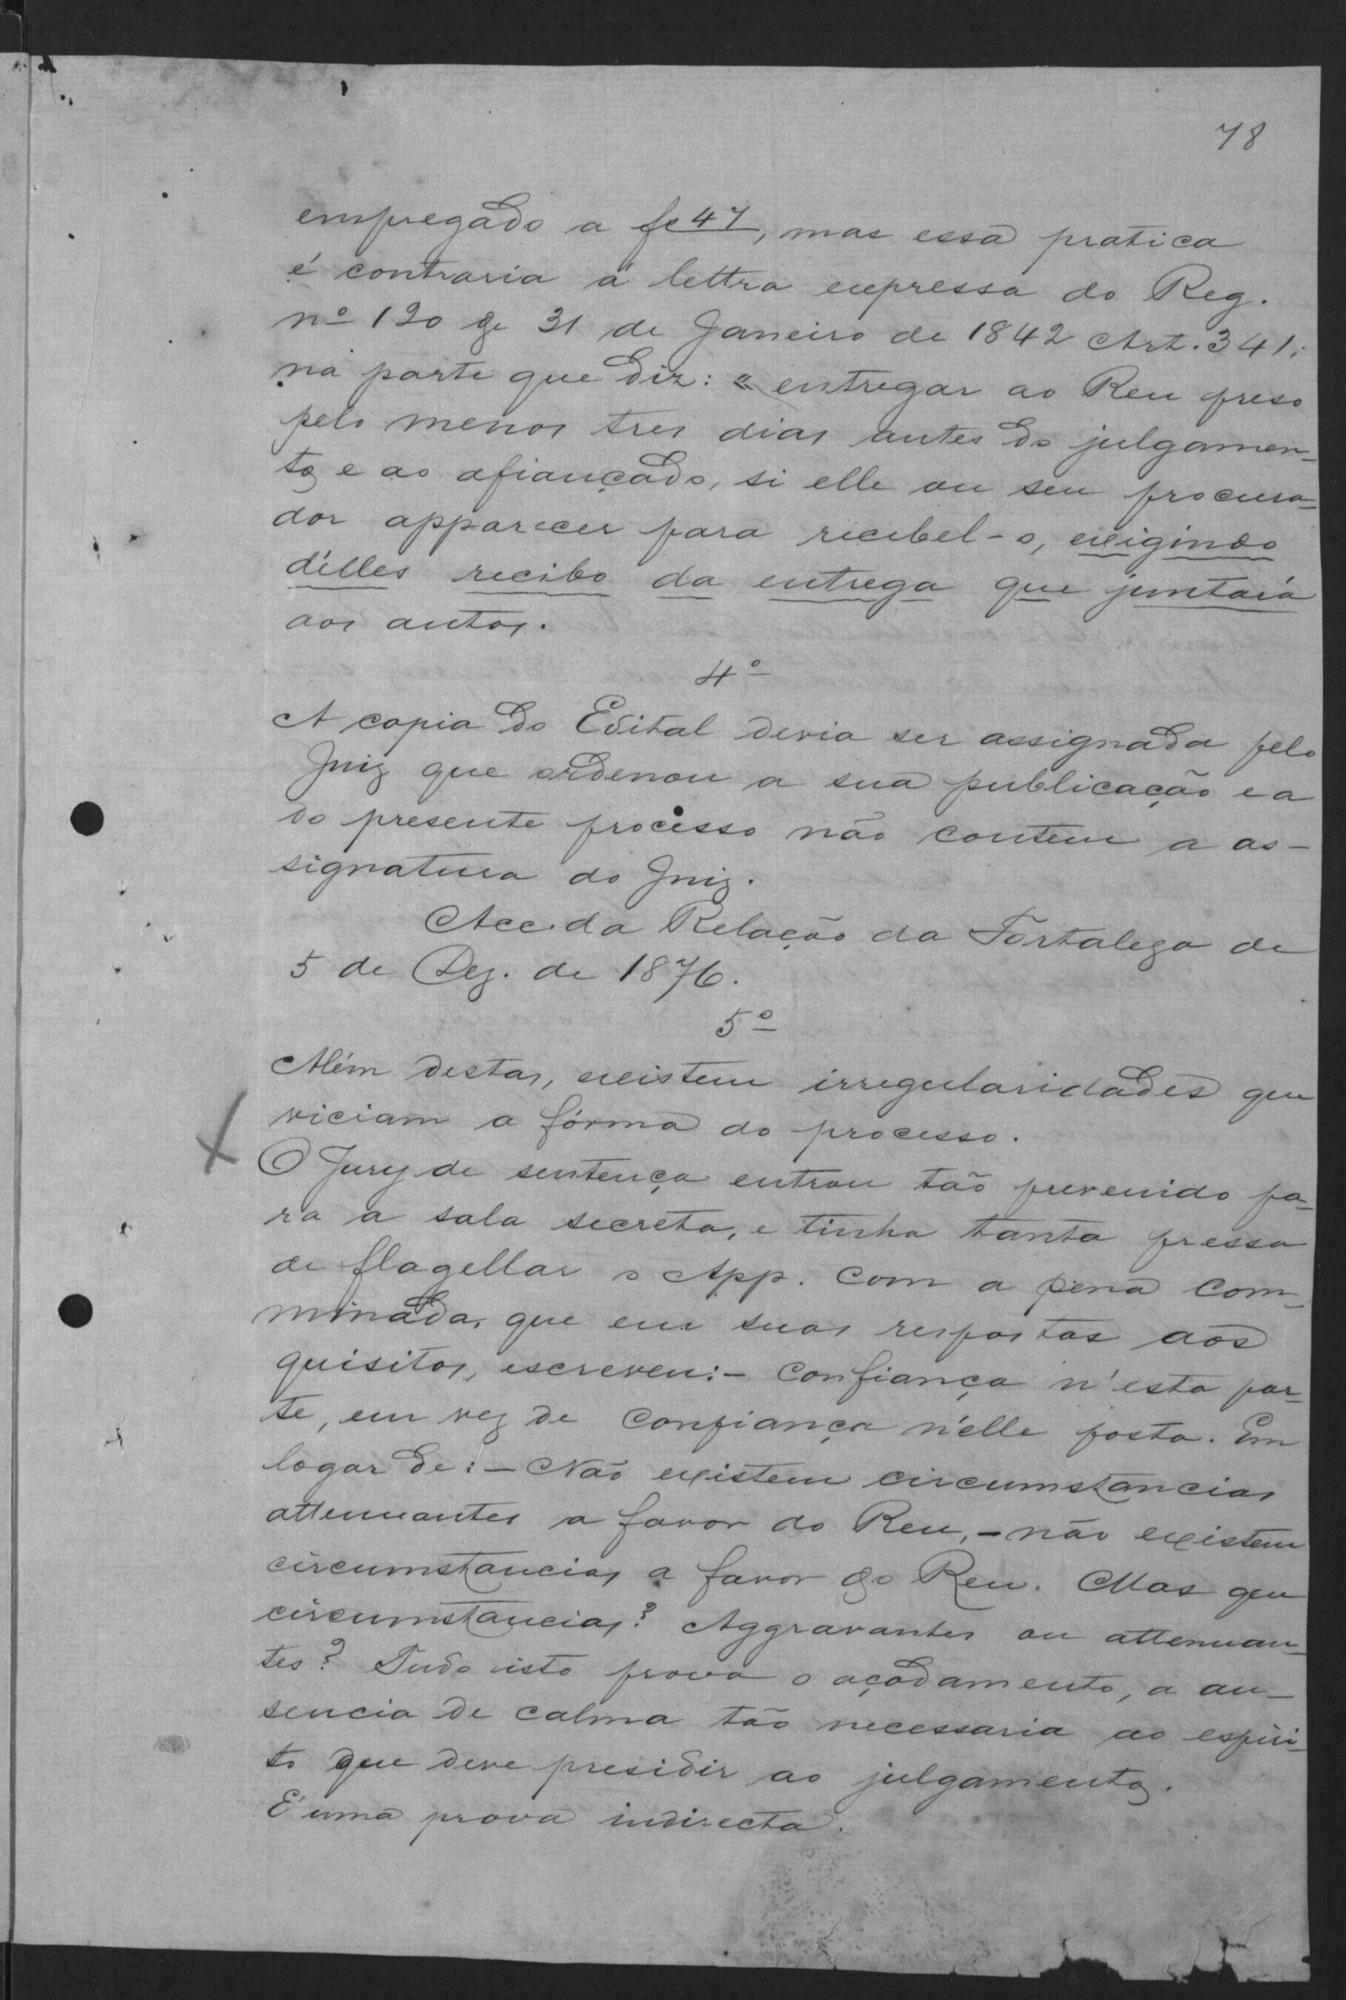 78
empregado a fs 47, mas essa pratica
é contraria á lettra expressa do Reg.
nº 120 de 31 de Janeiro de 1842 Art. 341,
na parte que diz: « entregar ao Reu preso
pelo menos tres dias antes do julgamen-
to, e ao afiançado, si elle ou seu procura-
dor apparecer para recibel-o, exigindo
d'elles recibo da entrega que juntará
aos autos.
4º
A copia do Edital devia ser assignada pelo
Juiz que ordenou a sua publicação e a
do presente processo não contem a as-
signatura do Juiz.
Acc. da Relação da Fortaleza de
5 de Dez. de 1876.
5º
Além destas, existem irregularidades que
viciam a fórma do processo.
O Jury de sentença entrou tão prevenido pa-
ra a sala secreta, e tinha tanta pressa
de flagellar o App. com a pena com-
minada, que em suas respostas aos
quisitos, escreveu: - confiança n'esta par-
te, em vez de confiança n'elle posta. Em
logar de: - Não existem circumstancias
attenuantes a favor do Reu, - não existem
circumstancias a favor do Reu. Mas que
circumstancias? Aggravantes ou attenuan-
tes? Tudo isto prova o açodamento, a au-
sencia de calma tão necessaria ao espiri-
to que deve presidir ao julgamento.
É uma prova indirecta.